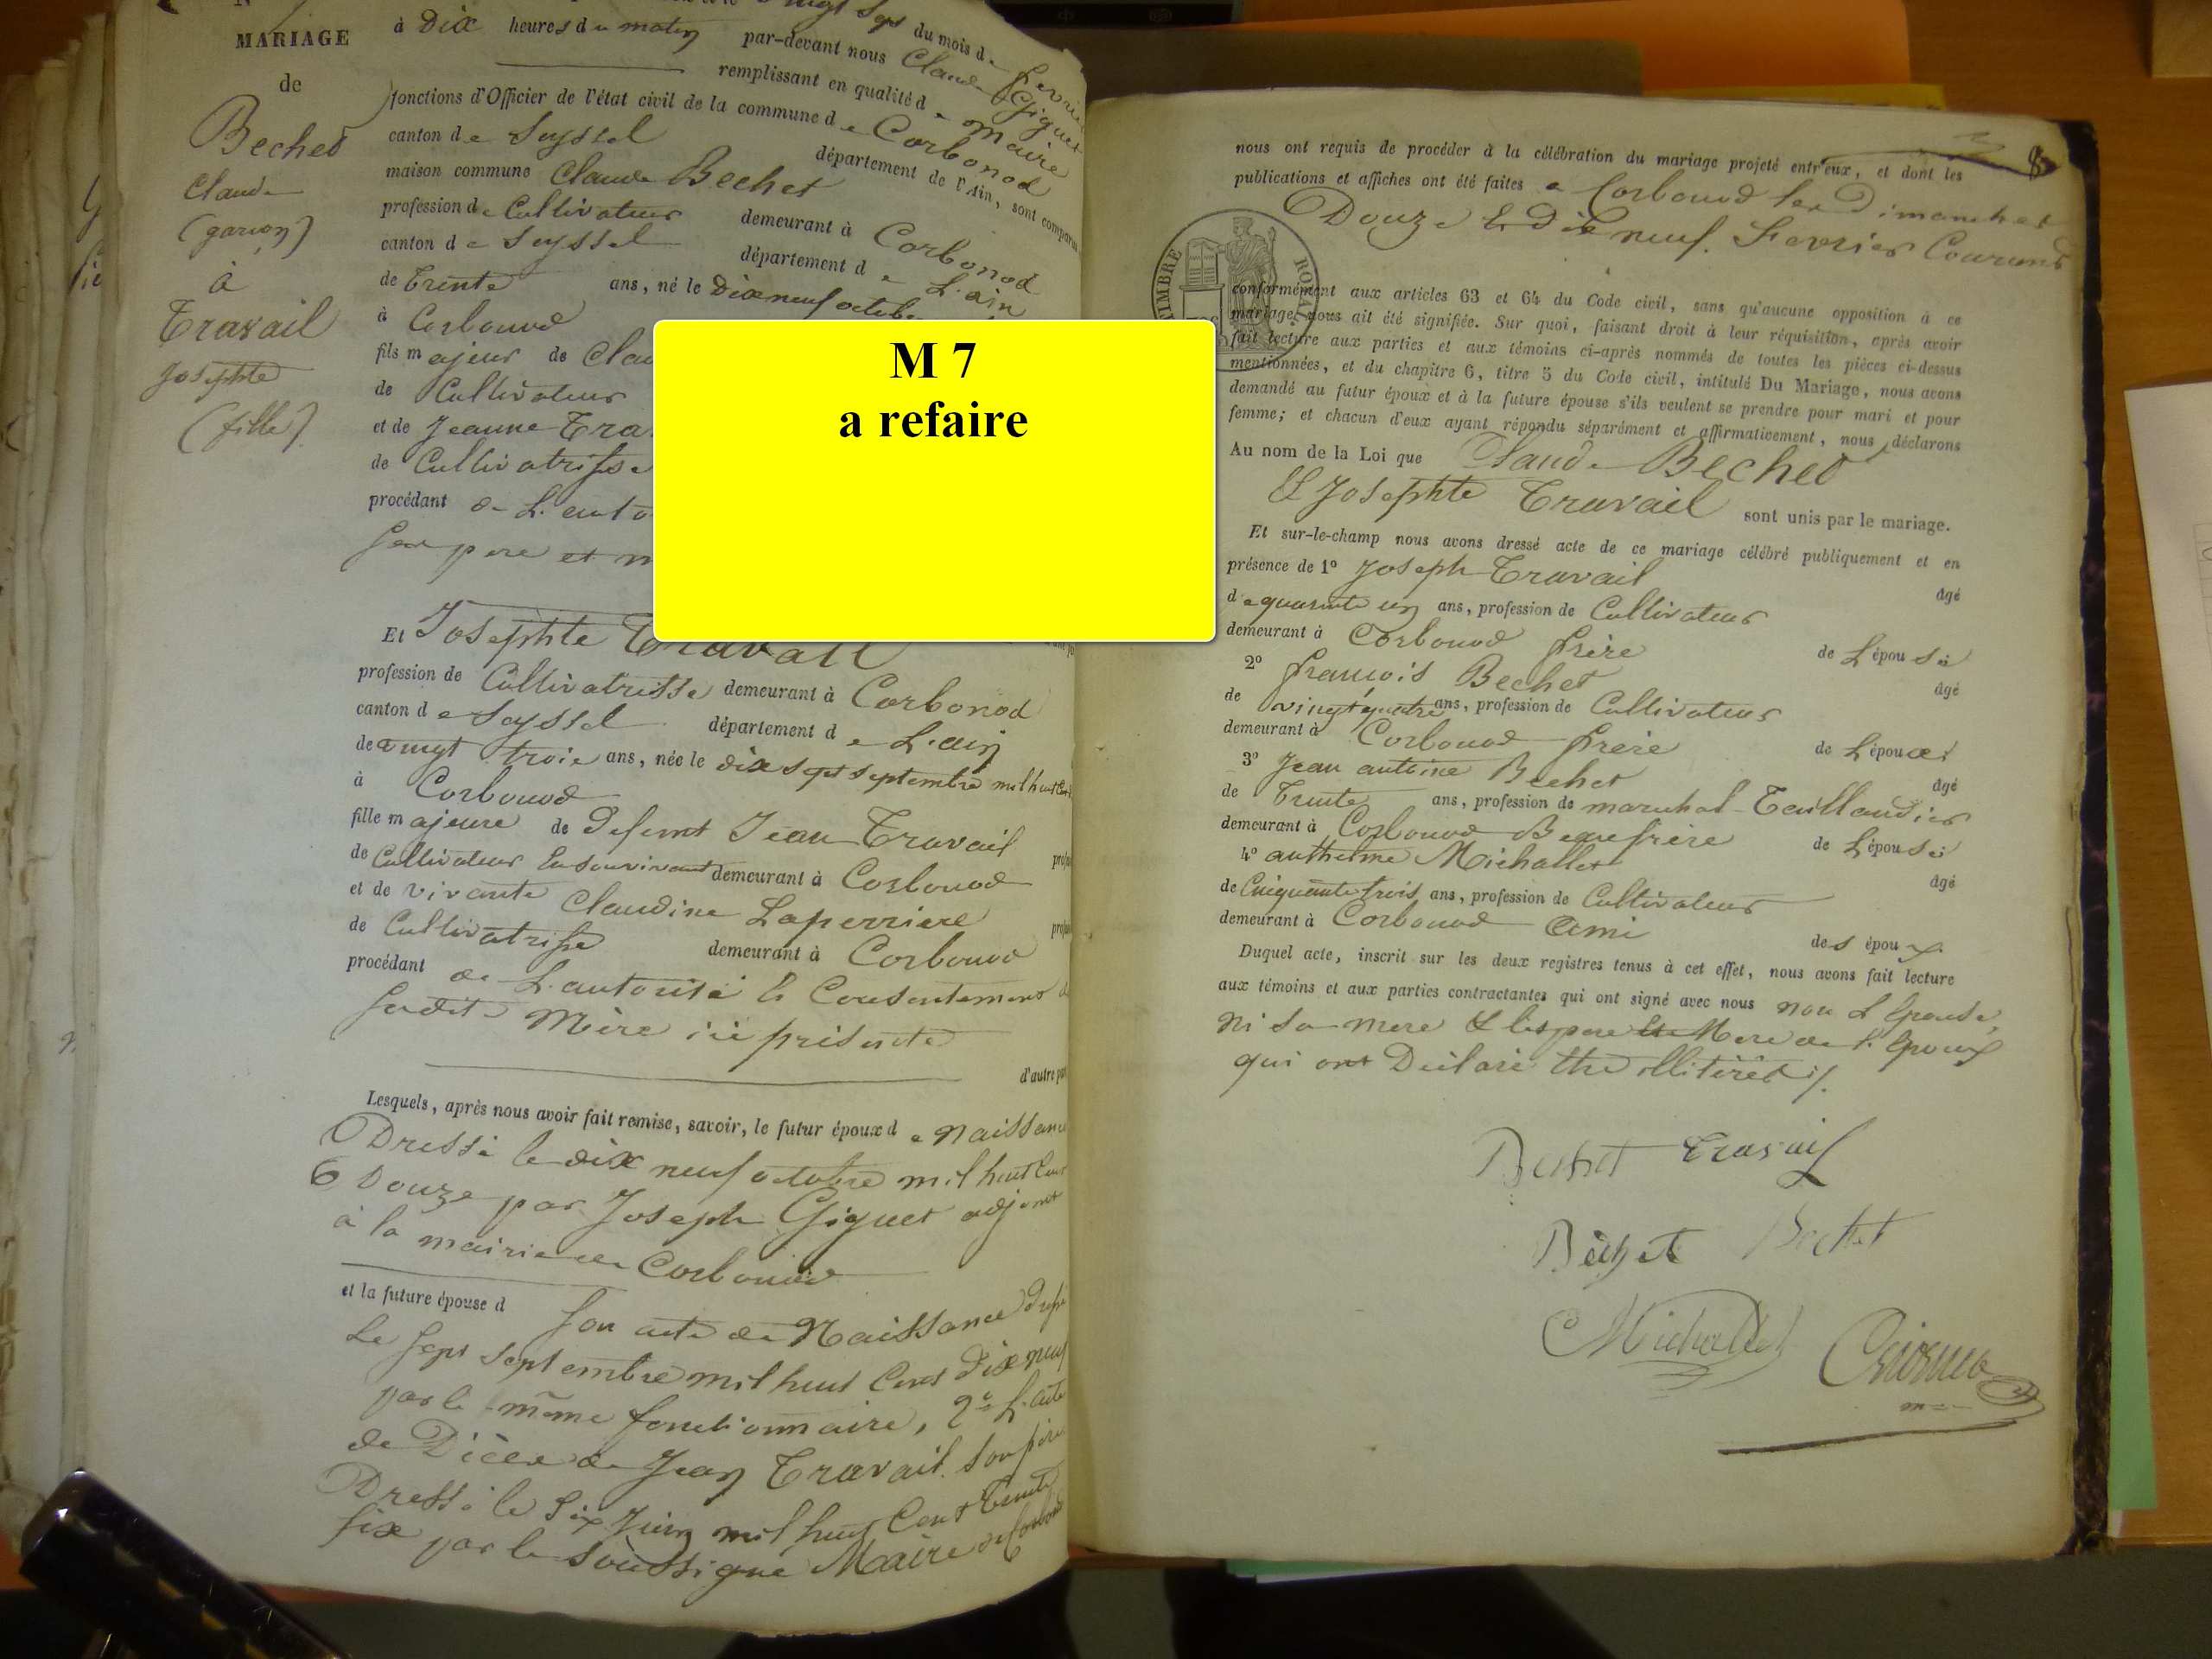 MARIAGE
de
Bechet
Claude
(garçon)
à
Travail
Josephte
(fille)
du mois de fevrier
à Dix heures du matin par-devant nous Claude Giguet
remplissant en qualité de Maire
fonctions d'Officier de l'état civil de la commune de Corbonod
canton de Seyssel département de l'Ain, sont comparus
maison commune Claude Bechet
profession de Cultivateur demeurant à Corbonod
canton de Seyssel département de L'ain
de trente ans, né le Dix neuf octobre
à Corbonod
fils majeur de Clau
de Cultivateur
et de Jeanne Tra
de Cultivatrisse
procédant de L'auto
ses pere et m
M 7
a refaire
Et Josephte Travail
profession de Cultivatrisse demeurant à Corbonod
canton de Seyssel département de L'ain
de vingt trois ans, née le dix sept septembre mil huit cent
à Corbonod
fille majeure de Defunt Jean Travail
de Cultivateur En son vivant demeurant à Corbonod
et de vivante Claudine Laperriere
de Cultivatrisse demeurant à Corbonod
procédant de L'autorité & Consentement de
sadite Mère ici présente
d'autre part
Lesquels, après nous avoir fait remise, savoir, le futur époux de Naissance
Dressé le dix neuf octobre mil huit Cent
Douze par Joseph Giguet adjoint
à la mairie de Corbonod
et la future épouse d son acte de Naissance Dressé
Le sept septembre mil huit Cent Dix neuf
par le même fonctionnaire, 2° L'acte
de Décès de Jean Travail son père
Dressé le Six Juin mil huit Cent Trente
six par le soussigné Maire de Corbonod
8
nous ont requis de procéder à la célébration du mariage projeté entr'eux, et dont les
publications et affiches ont été faites a Corbonod les Dimanches
Douze & Dix neuf Fevrier Courant
TIMBRE ROYAL
conformément aux articles 63 et 64 du Code civil, sans qu'aucune opposition à ce
mariage nous ait été signifiée. Sur quoi, faisant droit à leur réquisition, après avoir
fait lecture aux parties et aux témoins ci-après nommés de toutes les pièces ci-dessus
mentionnées, et du chapitre 6, titre 5 du Code civil, intitulé Du Mariage, nous avons
demandé au futur époux et à la future épouse s'ils veulent se prendre pour mari et pour
femme; et chacun d'eux ayant répondu séparément et affirmativement, nous déclarons
Au nom de la Loi que Claude Bechet
& Josephte Travail sont unis par le mariage.
Et sur-le-champ nous avons dressé acte de ce mariage célébré publiquement et en
présence de 1° Joseph Travail âgé
de quarante un ans, profession de Cultivateur
demeurant à Corbonod frère de L'épouse
2° françois Bechet âgé
de vingt quatre ans, profession de Cultivateur
demeurant à Corbonod frère de L'époux
3° Jean antoine Bechet âgé
de Trente ans, profession de marechal-Taillandier
demeurant à Corbonod Beaufrère de L'épouse
4° anthelme Michallet âgé
de Cinquante trois ans, profession de Cultivateur
demeurant à Corbonod ami des époux
Duquel acte, inscrit sur les deux registres tenus à cet effet, nous avons fait lecture
aux témoins et aux parties contractantes qui ont signé avec nous non L'épouse,
ni sa mere & les pere & Mere de l'époux
qui ont Déclaré être illitérés ./.
Bechet Travail
Bechet Bechet
Michallet